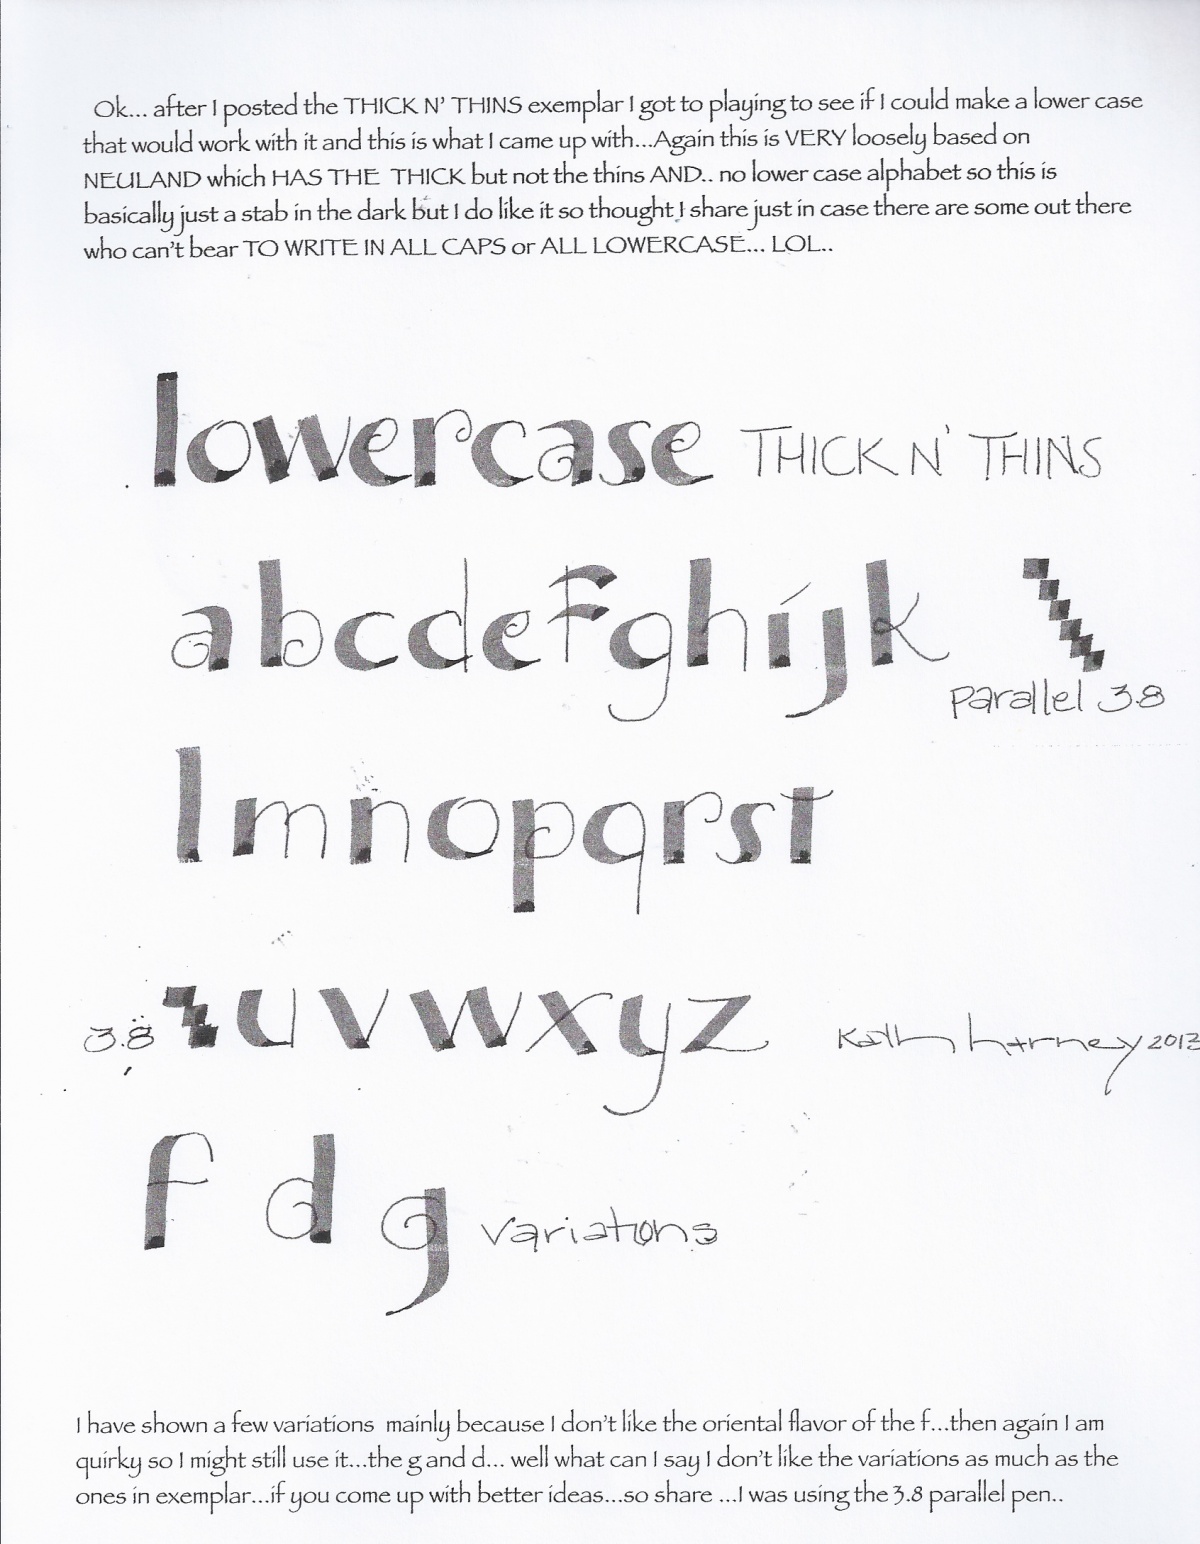 Ok... after I posted the THICK N' THINS exemplar I got to playing to see if I could make a lower case
that would work with it and this is what I came up with...Again this is VERY loosely based on
NEULAND which HAS THE THICK but not the thins AND.. no lower case alphabet so this is
basically just a stab in the dark but I do like it so thought I share just in case there are some out there
who can't bear TO WRITE IN ALL CAPS or ALL LOWERCASE... LOL..
lowercase THICK N' THINS
abcdefghijk
parallel 3.8
lmnopqrst
3.8 uvwxyz
2013
f d g variations
I have shown a few variations mainly because I don't like the oriental flavor of the f...then again I am
quirky so I might still use it...the g and d... well what can I say I don't like the variations as much as the
ones in exemplar...if you come up with better ideas...so share ...I was using the 3.8 parallel pen..